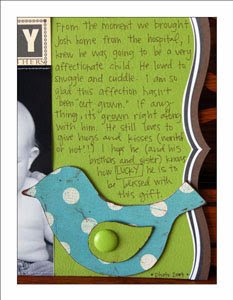 Y
THERS
From the moment we brought
Josh home from the hospital, I
knew he was going to be a very
affectionate child. He loved to
snuggle and cuddle. I am so
glad this affection hasn't
been "out grown." If any
thing, it's grown right along
with him. He still loves to
give hugs and kisses (wanted
or not!!) I hope he (and his
brothers and sister) know
how LUCKY he is to
be blessed with
this gift.